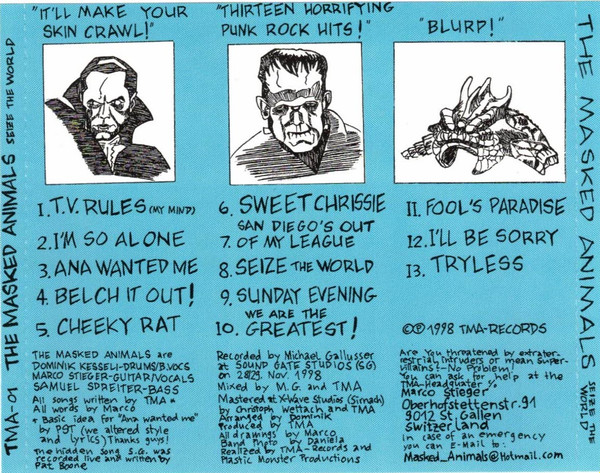 TMA-01 THE MASKED ANIMALS SEIZE THE WORLD
"IT'LL MAKE YOUR
SKIN CRAWL!"
"THIRTEEN HORRIFYING
PUNK ROCK HITS!"
"BLURP!"
1. T.V. RULES (MY MIND)
2. I'M SO ALONE
3. ANA WANTED ME
4. BELCH IT OUT!
5. CHEEKY RAT
6. SWEET CHRISSIE
SAN DIEGO'S OUT
7. OF MY LEAGUE
8. SEIZE THE WORLD
9. SUNDAY EVENING
WE ARE THE
10. GREATEST!
11. FOOL'S PARADISE
12. I'LL BE SORRY
13. TRYLESS
©℗ 1998 TMA-RECORDS
THE MASKED ANIMALS are
DOMINIK KESSELI-DRUMS/B.VOCS
MARCO STIEGER-GUITAR/VOCALS
SAMUEL SPREITER-BASS
All songs written by TMA *
All words by Marco
* Basic idea for "Ana wanted me"
by PST (we altered style
and lyrics) Thanks guys!
The hidden song S.G. was
recorded live and written by
Pat Boone
Recorded by Michael Gallusser
at SOUND GATE STUDIOS (SG)
on 28/29. Nov. 1998
Mixed by M.G. and TMA
Mastered at X-Wave Studios (Sirnach)
by Christoph Wettach and TMA
Arranged by Dominik
Produced by TMA
All drawings by Marco
Band Photo by Daniela
Realized by TMA-Records and
Plastic Monster Productions
Are You threatened by extrater-
restrial intruders or mean Super-
villains?-No Problem!
You can ask for help at the
TMA-Headquater c/o
Marco Stieger
Oberhofstettenstr. 91
9012 St. Gallen
Switzerland
In case of an emergency
you can E-Mail to:
Masked_Animals@Hotmail.com
THE MASKED ANIMALS SEIZE THE WORLD